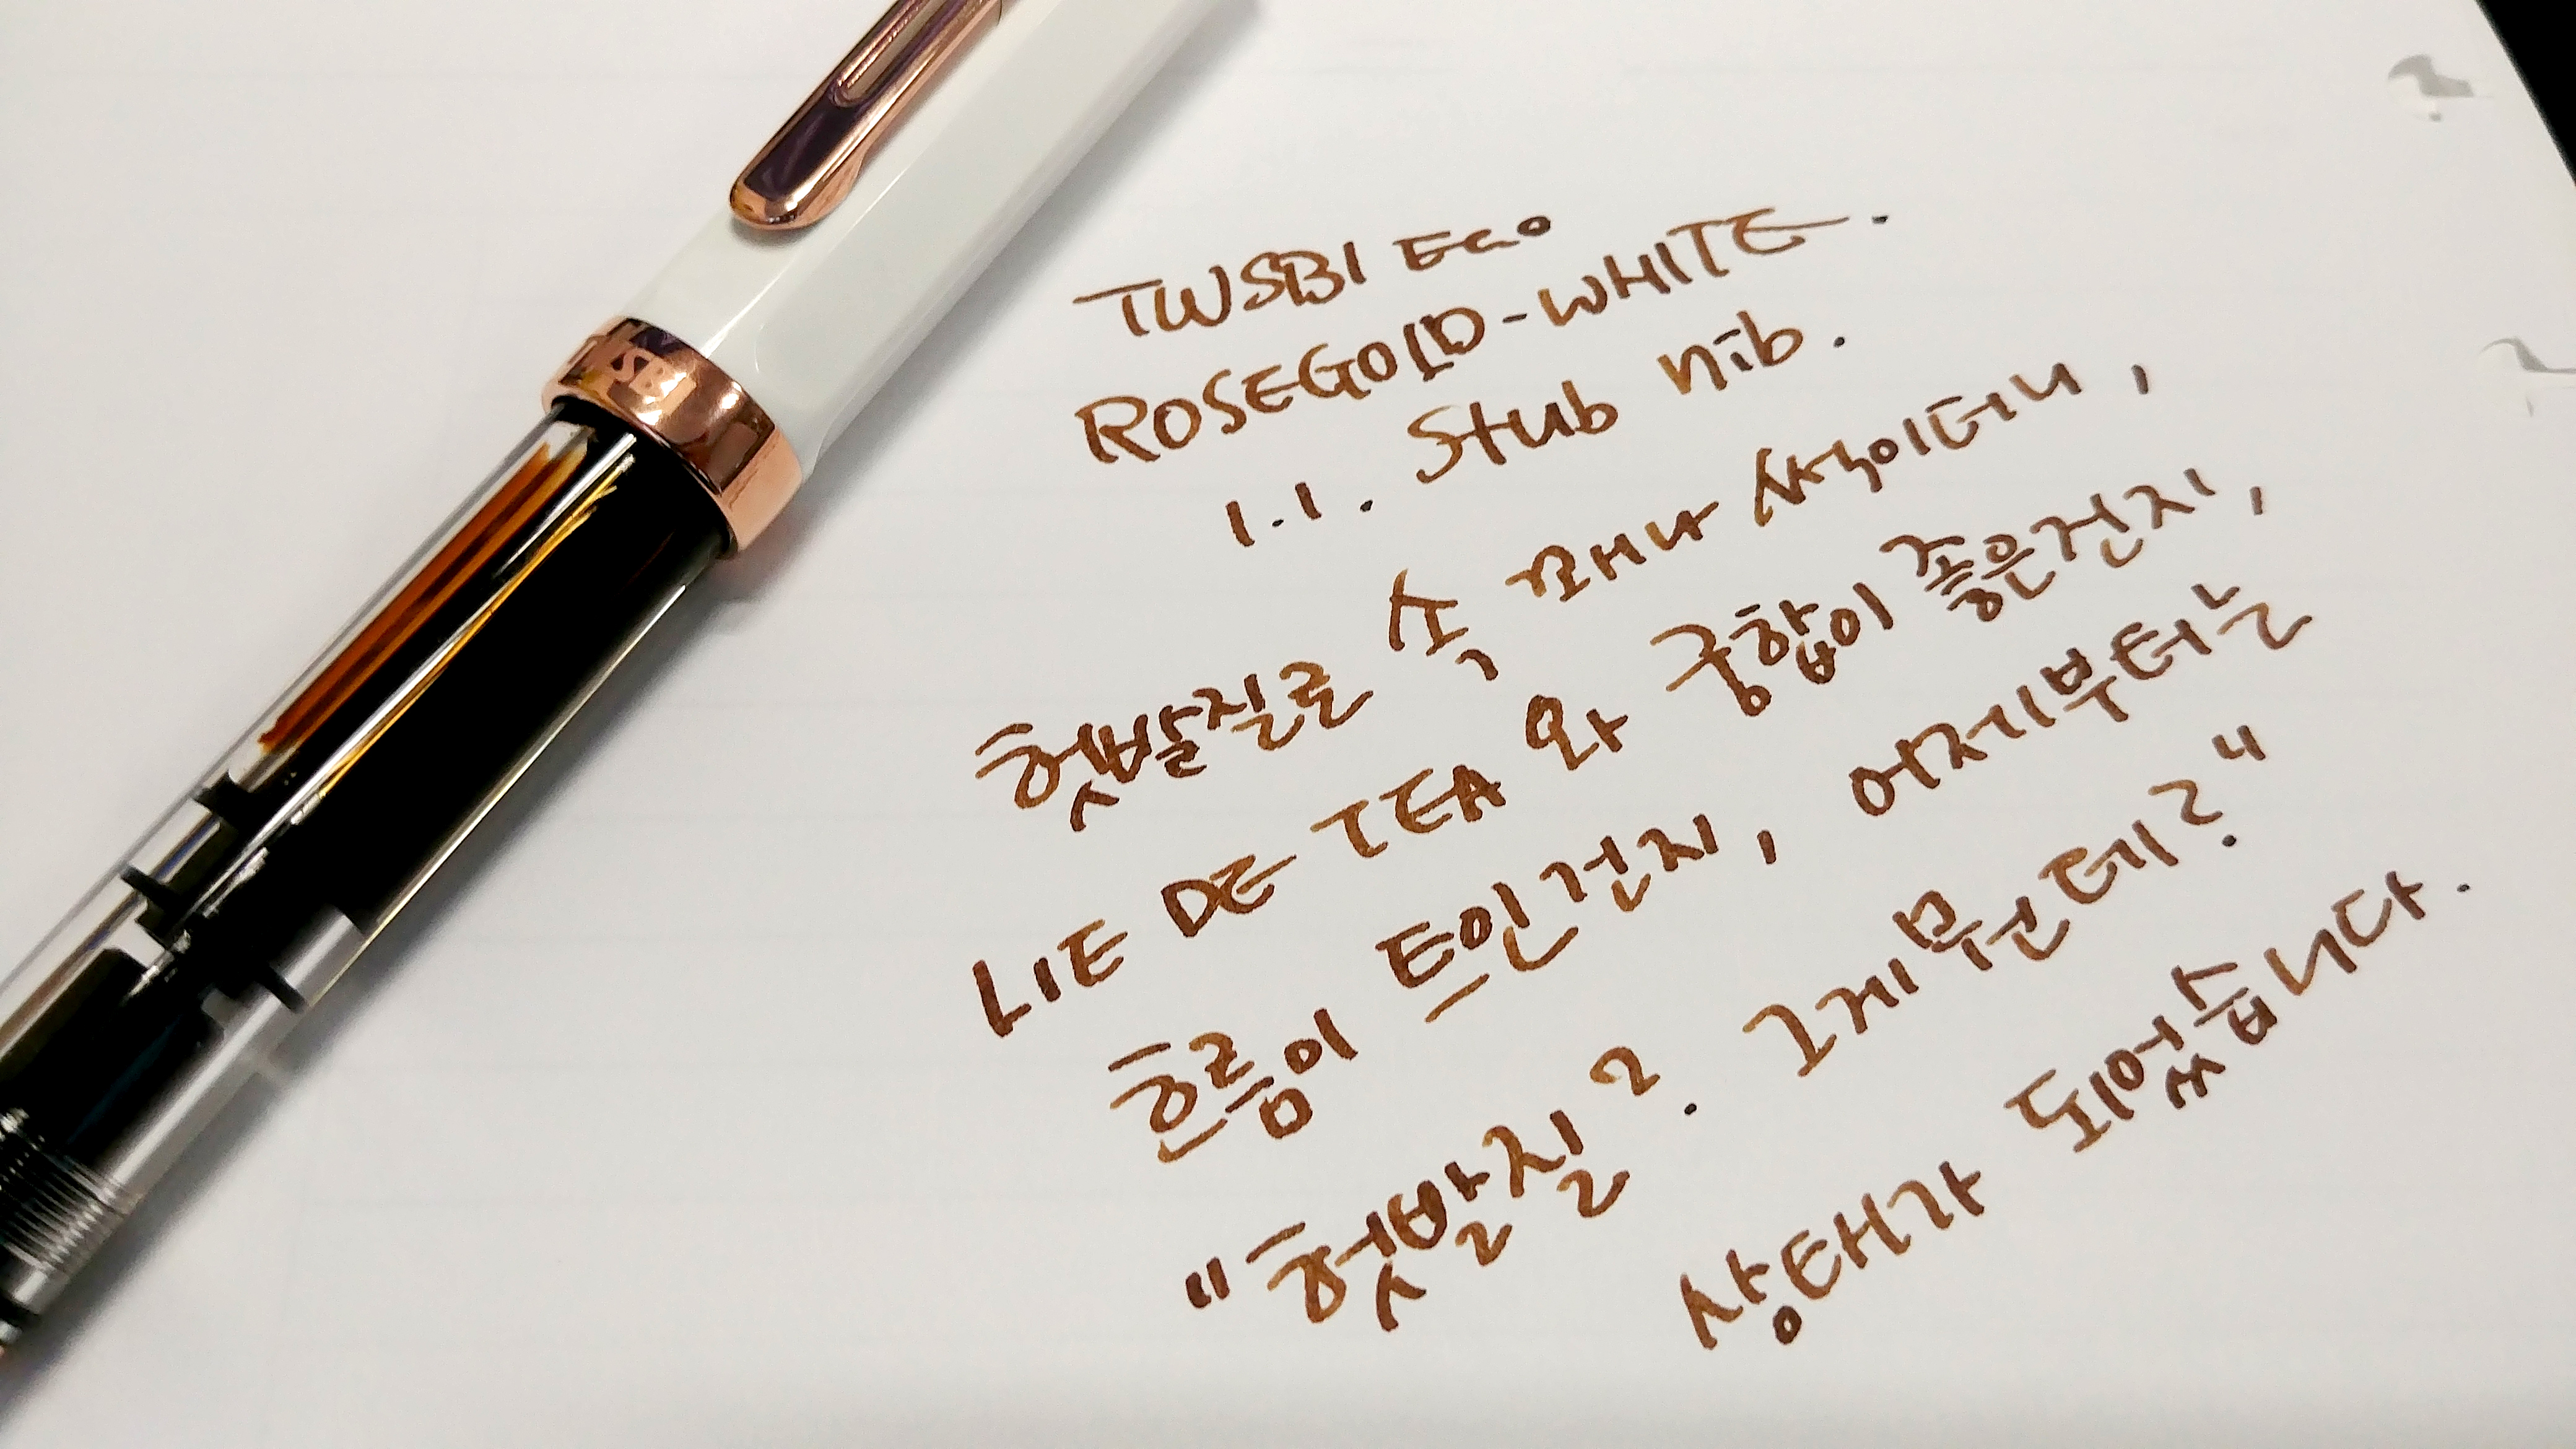 TWSBI
TWSBI ECO
ROSEGOLD-WHITE.
1.1. Stub nib.
헛발질로 속 꽤나 썩이더니,
LIE DE TEA 와 궁합이 좋은건지,
흐름이 트인건지, 어제부터는
"헛발질? 그게 뭔데?"
상태가 되었습니다.